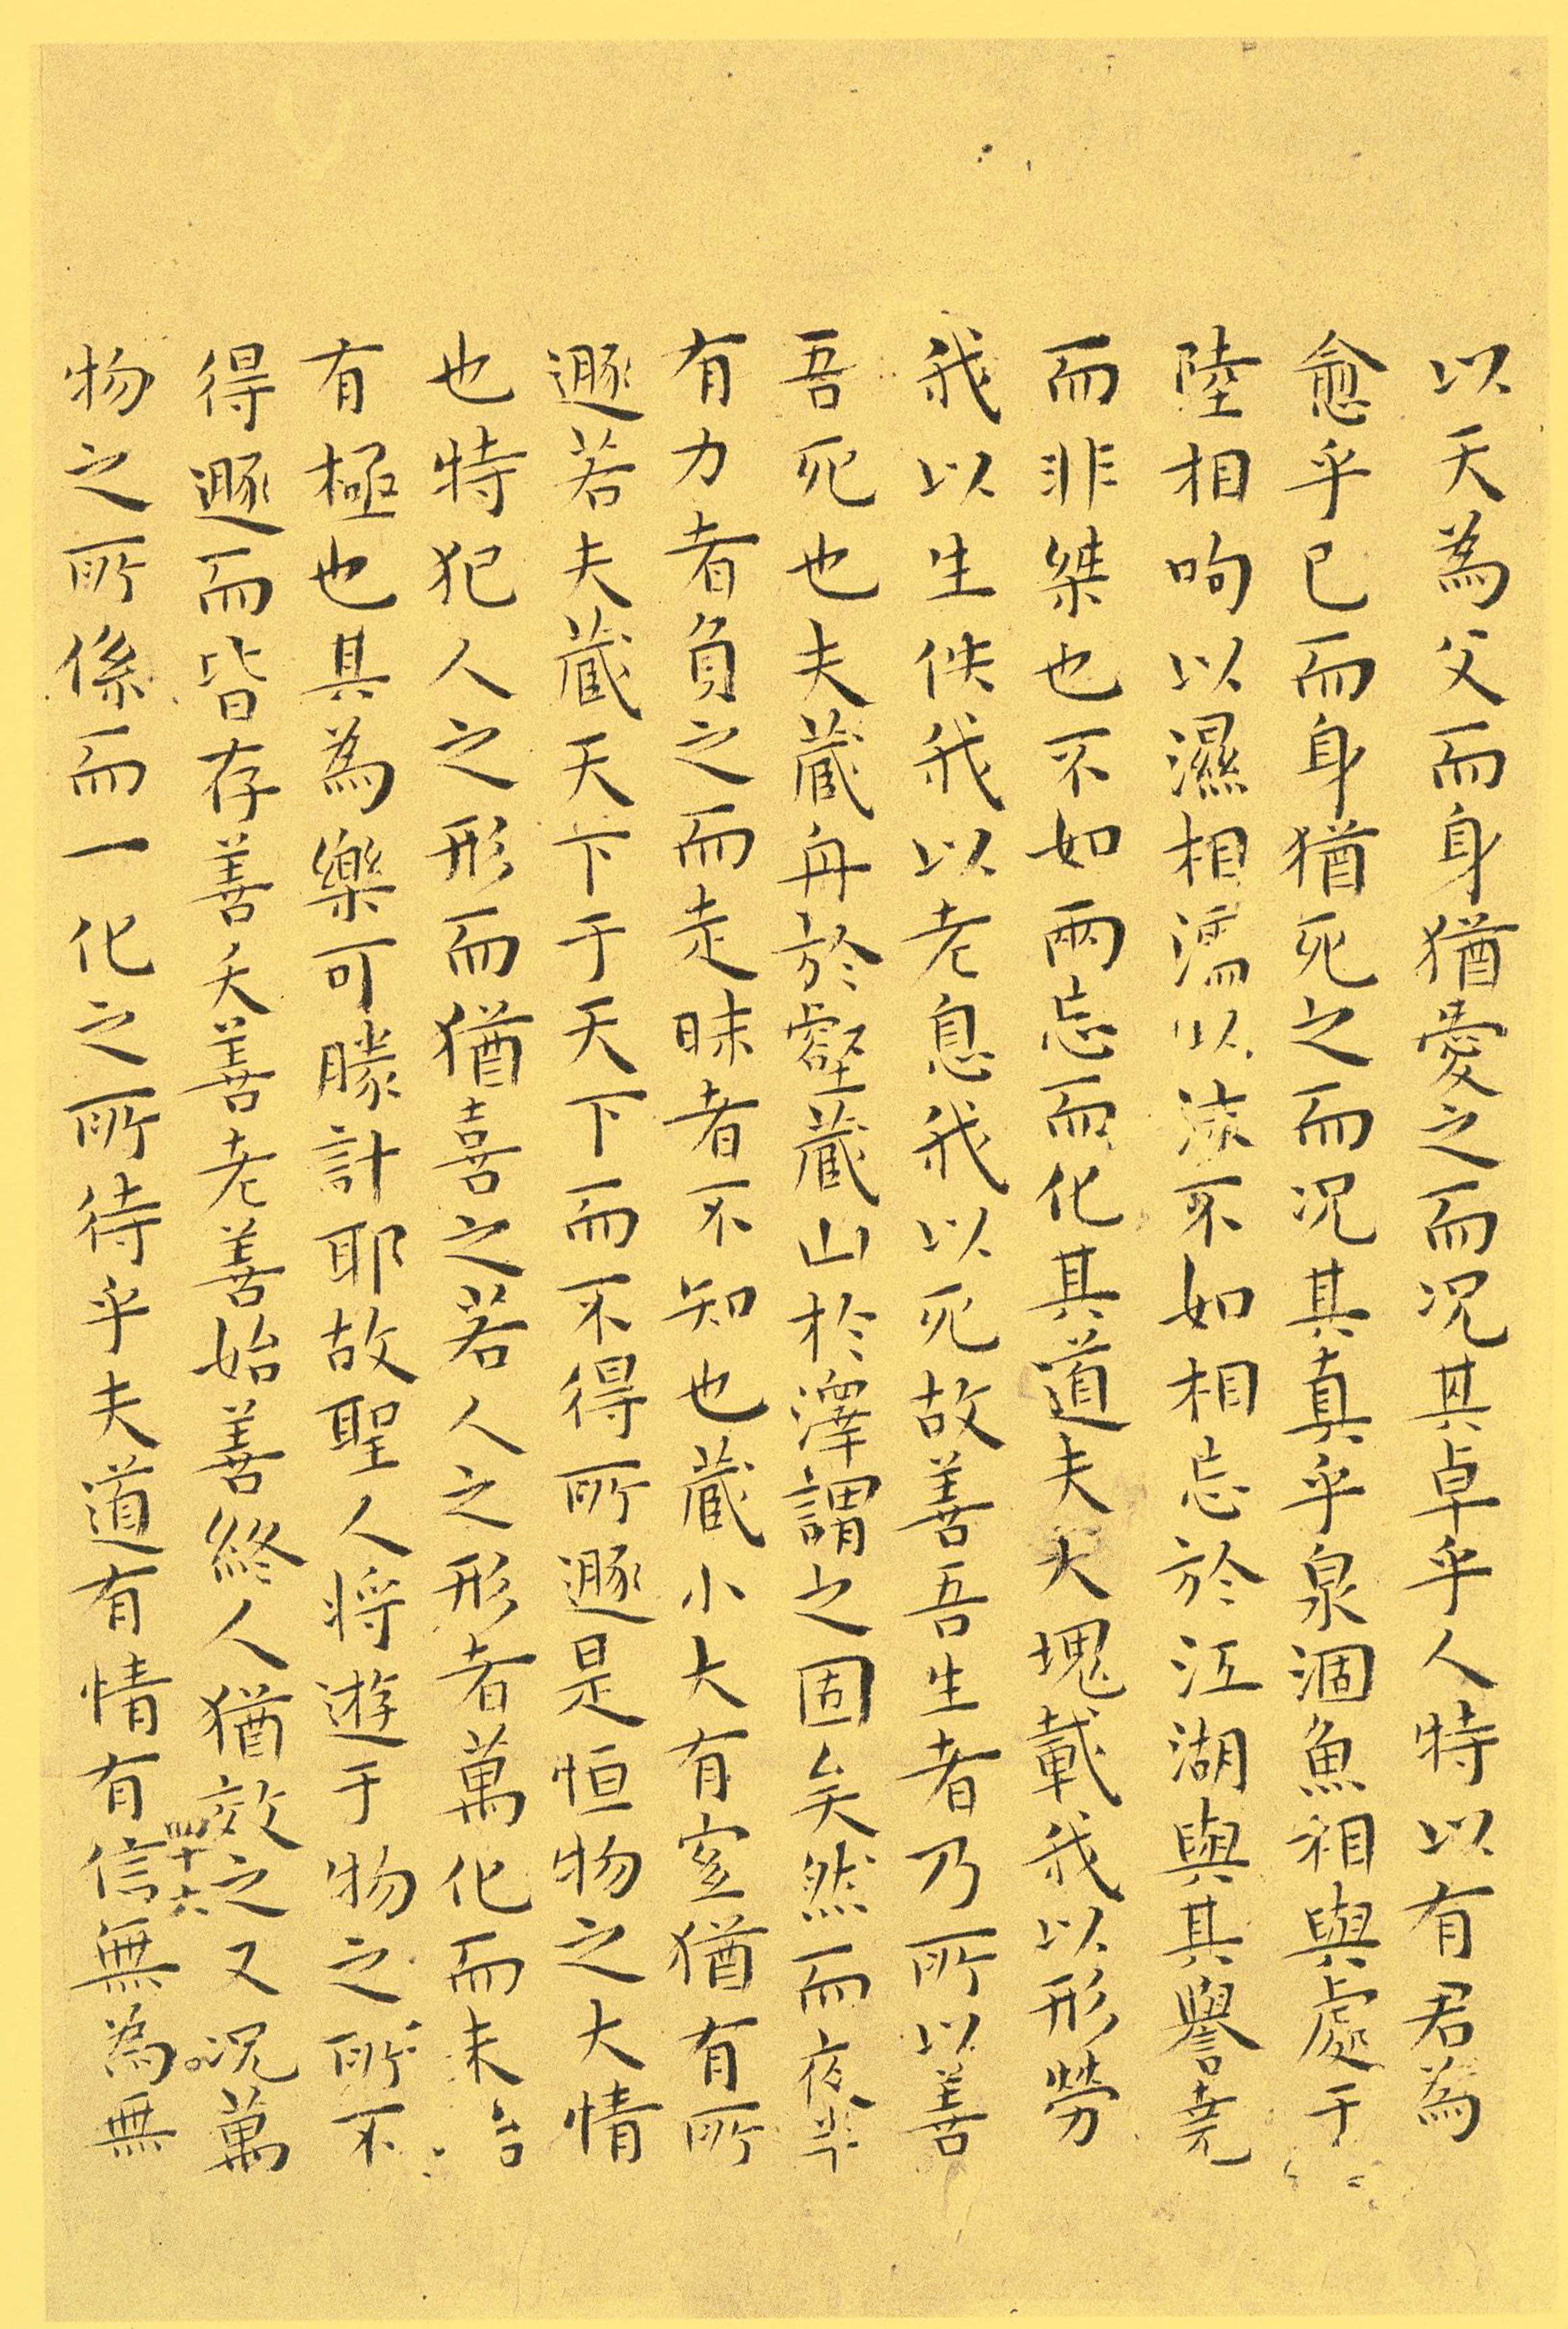 以天為父而身猶愛之而况其卓乎人特以有君為
愈乎已而身猶死之而况其真乎泉涸魚相與處于
陸相呴以濕相濡以沫不如相忘於江湖與其譽堯
而非桀也不如兩忘而化其道夫大塊載我以形勞
我以生佚我以老息我以死故善吾生者乃所以善
吾死也夫藏舟於壑藏山於澤謂之固矣然而夜半
有力者負之而走昧者不知也藏小大有宜猶有所
遯若夫藏天下于天下而不得所遯是恒物之大情
也特犯人之形而猶喜之若人之形者萬化而未台
有極也其為樂可勝計耶故聖人将遊于物之所不
得遯而皆存善夭善老善始善終人猶效之又况萬
物之所係而一化之所待乎夫道有情有信無為無
四十六